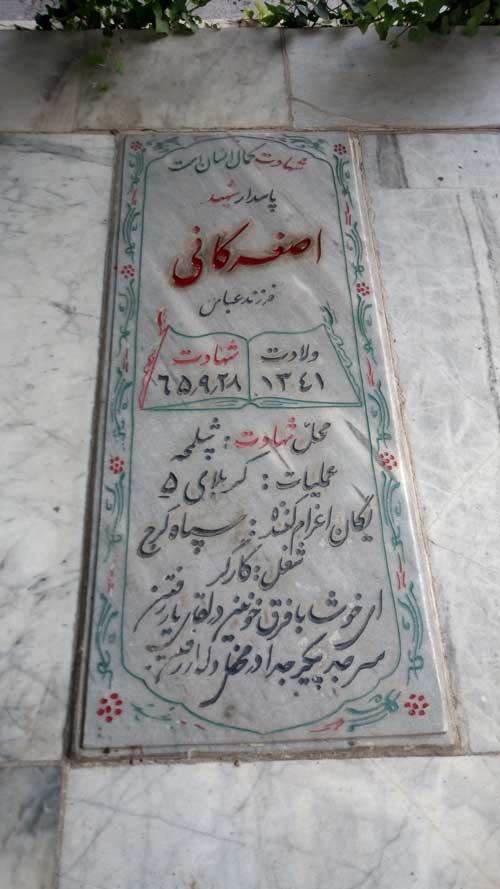 شهادت کمال انسان است
پاسدار شهید
اصغر کافی
فرزند عباس
ولادت شهادت
۱۳۴۱ ۶۵,۹,۲۸
محل شهادت : شلمچه
عملیات : کربلای ۵
یگان اعزام کننده : سپاه کرج
شغل : کارگر
ای خوشا با فرق خونین در لقای یار رفتن
سر جدا پیکر جدا در محفل دلدار رفتن